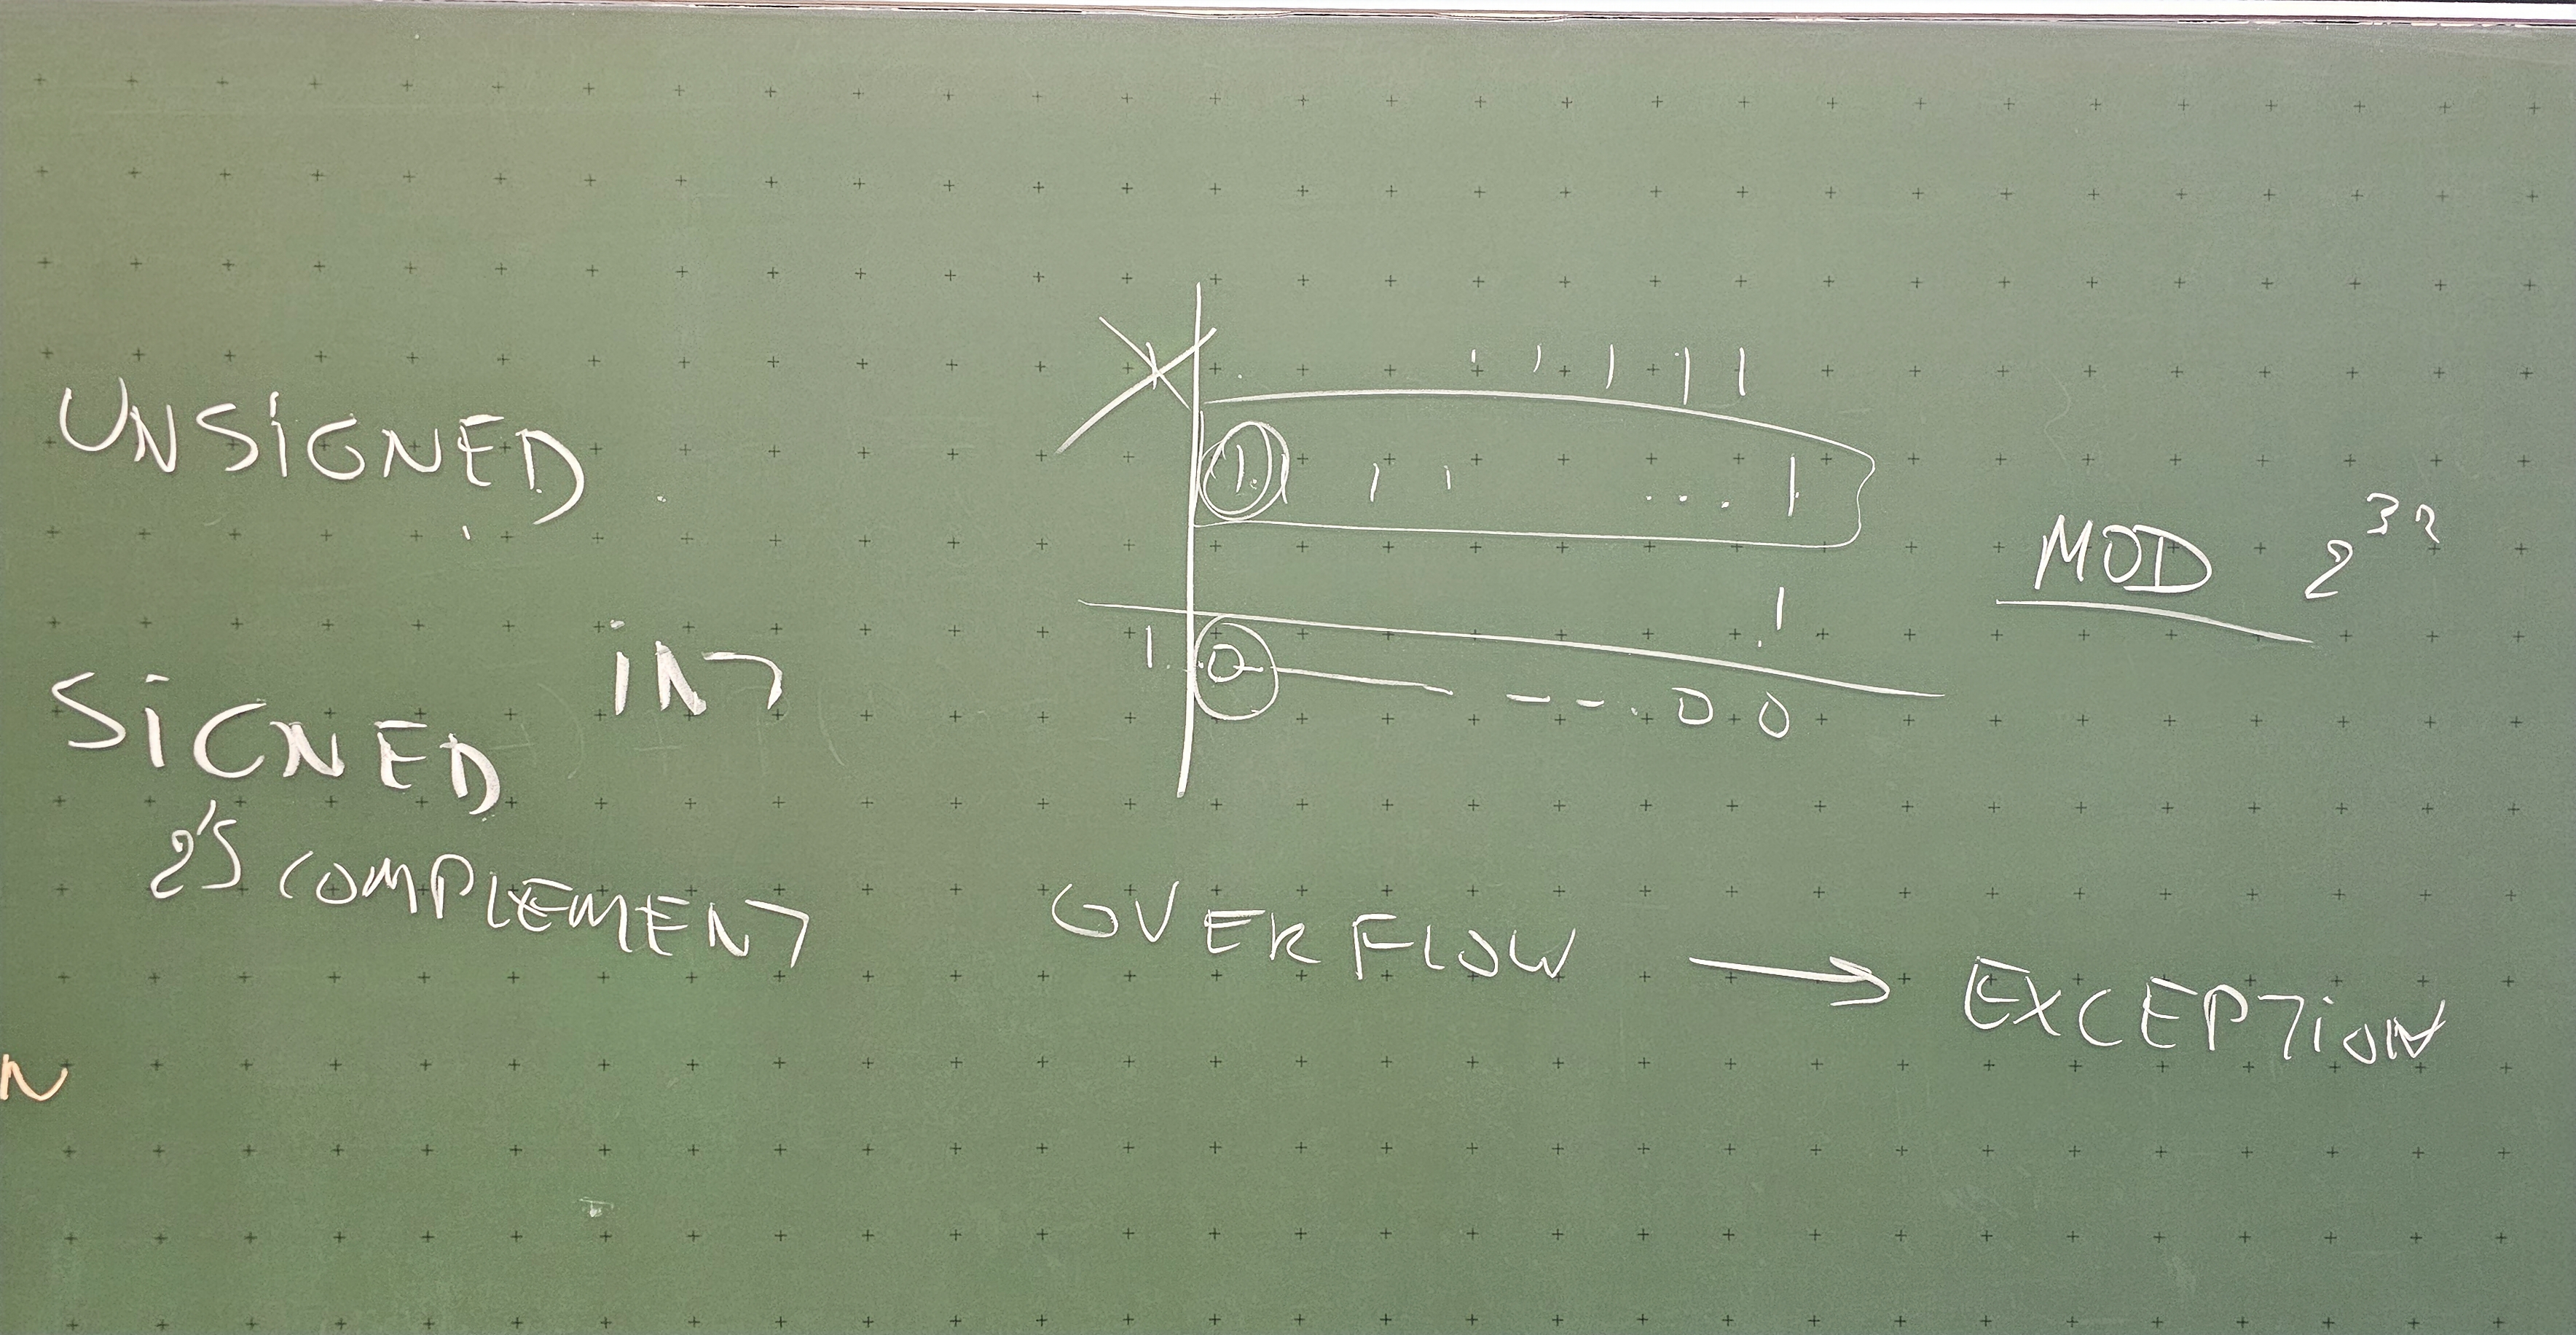 UNSIGNED
1 1 1 1 1
1 1 1 ... 1
MOD 2^32
1
INT
1 0 — -- . 0 0
SIGNED
2'S COMPLEMENT
OVERFLOW → EXCEPTION
N